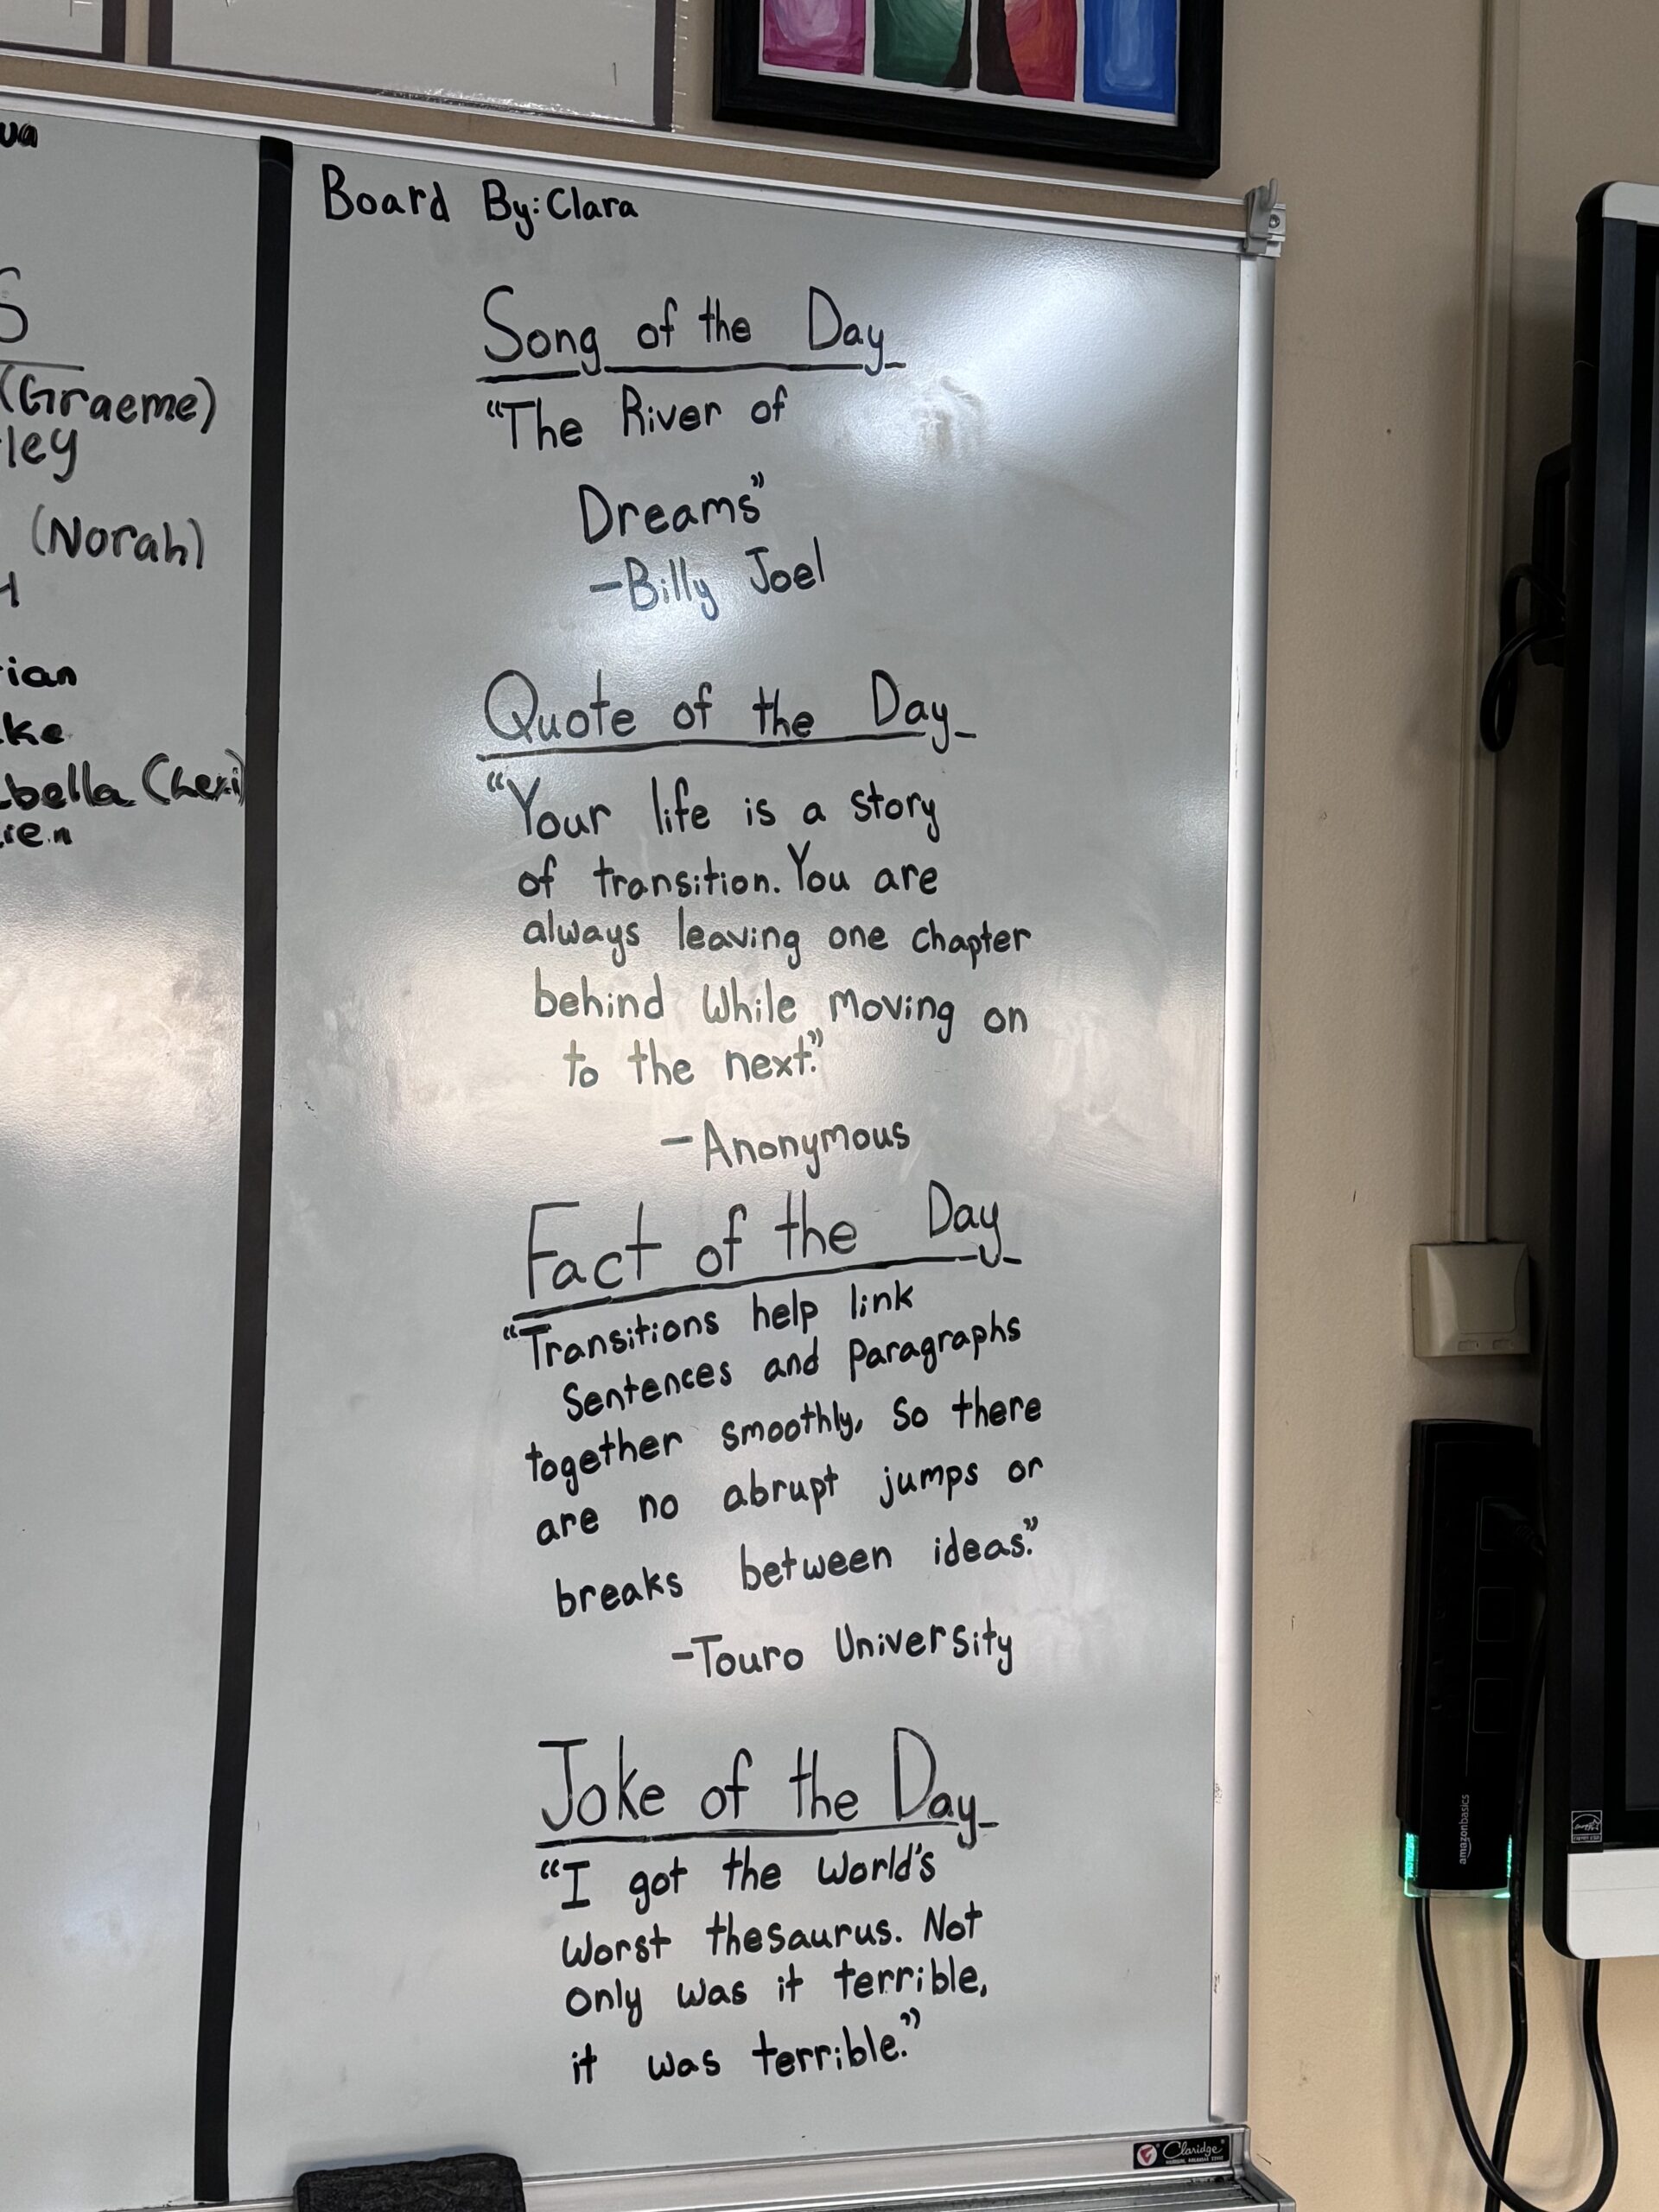 (Graeme)
(Norah)
Board By: Clara
Song of the Day
"The River of
Dreams"
-Billy Joel
Quote of the Day
"Your life is a story
of transition. You are
always leaving one chapter
behind while moving on
to the next."
-Anonymous
Fact of the Day
"Transitions help link
Sentences and paragraphs
together smoothly, so there
are no abrupt jumps or
breaks between ideas."
-Touro University
Joke of the Day
"I got the world's
worst thesaurus. Not
only was it terrible,
it was terrible."
Claridge
amazonbasics